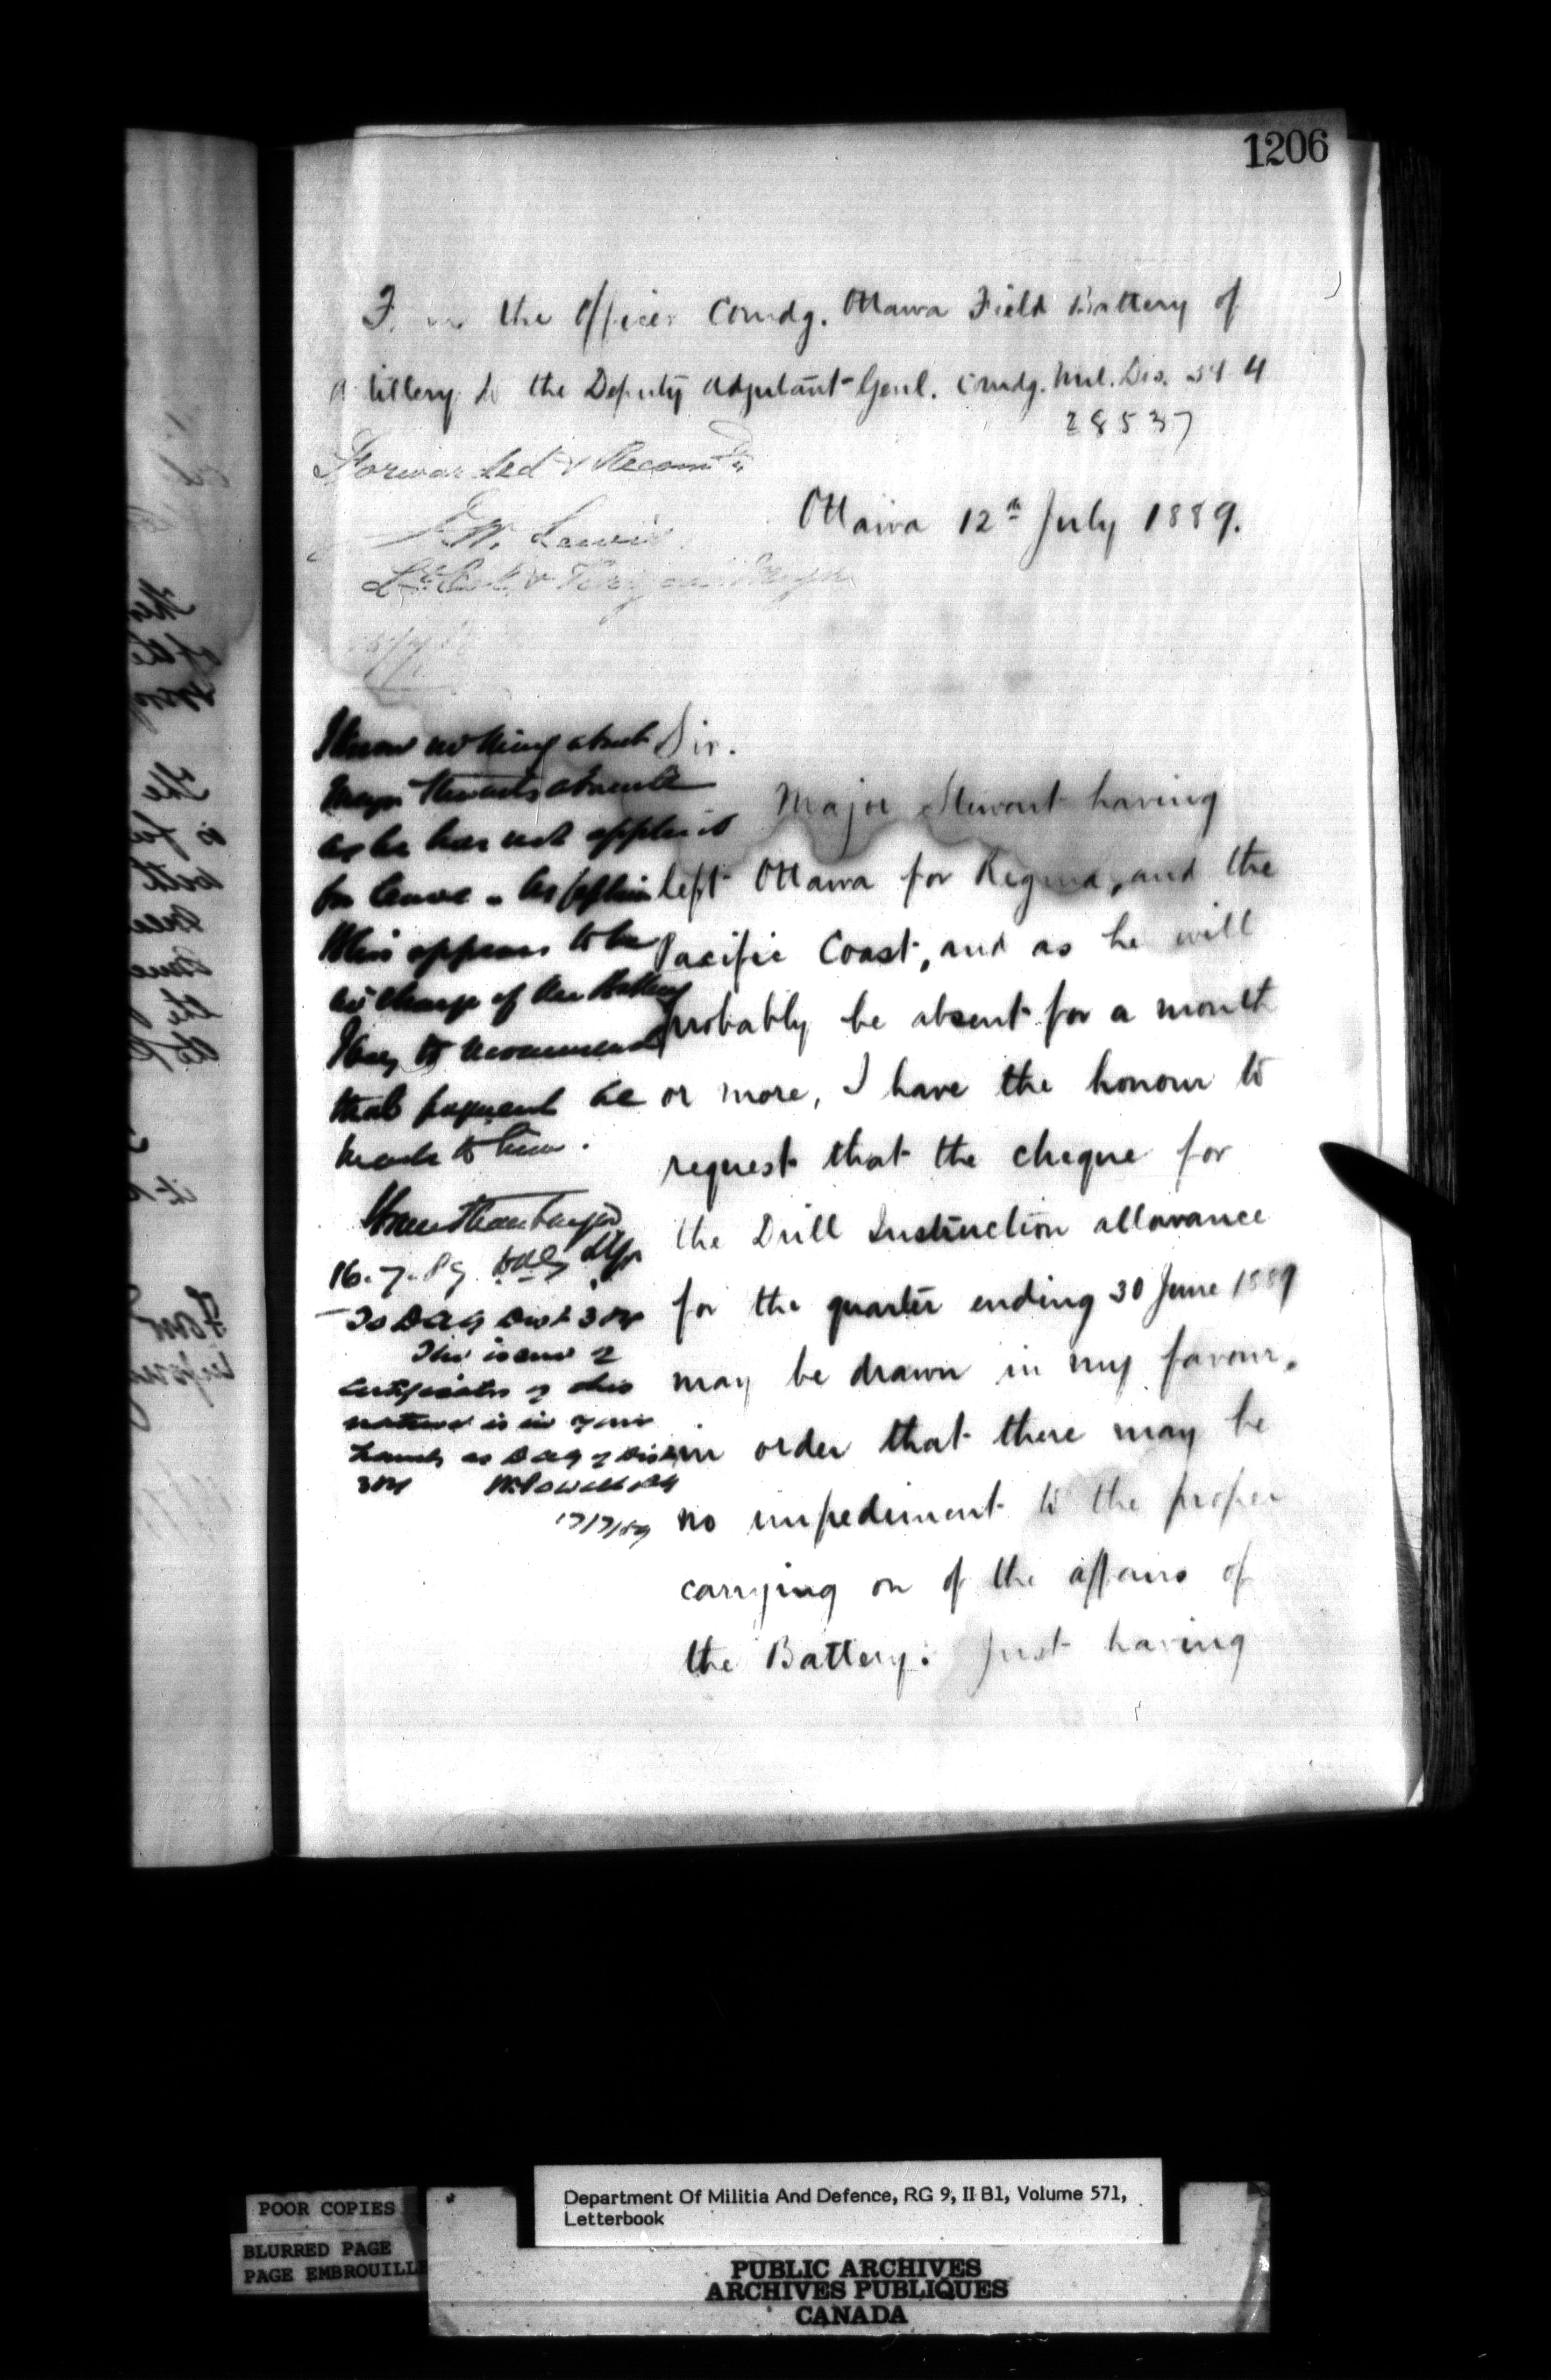 1206
the Officer Comdg. Ottawa Field Battery of
Artillery to the Deputy Adjutant Genl. Comdg. Mil. Dis. 3 & 4
28537
Forwarded & Recomd
Lewis
Ottawa 12th July 1889.
Sir.
Major Stewart having
left Ottawa for Regina, and the
Pacific Coast, and as he will
probably be absent for a month
or more, I have the honour to
request that the cheque for
the Drill Instruction allowance
for the quarter ending 30 June 1889
may be drawn in my favour,
in order that there may be
no impediment to the proper
carrying on of the affairs of
the Battery. Just having
I know nothing about
Major Stewarts absence
as he has not applied
for leave - as Captain
appears to be
in charge of the Battery
I beg to recommend
that payment be
made to him.
16.7.89
To DAG Dist 3 & 4
certificates of this
nature is in your
hands as DAG of Dist
3 & 4 W Powell AG
17/7/89
POOR COPIES
BLURRED PAGE
PAGE EMBROUILLE
Department Of Militia And Defence, RG 9, II B1, Volume 571,
Letterbook
PUBLIC ARCHIVES
ARCHIVES PUBLIQUES
CANADA